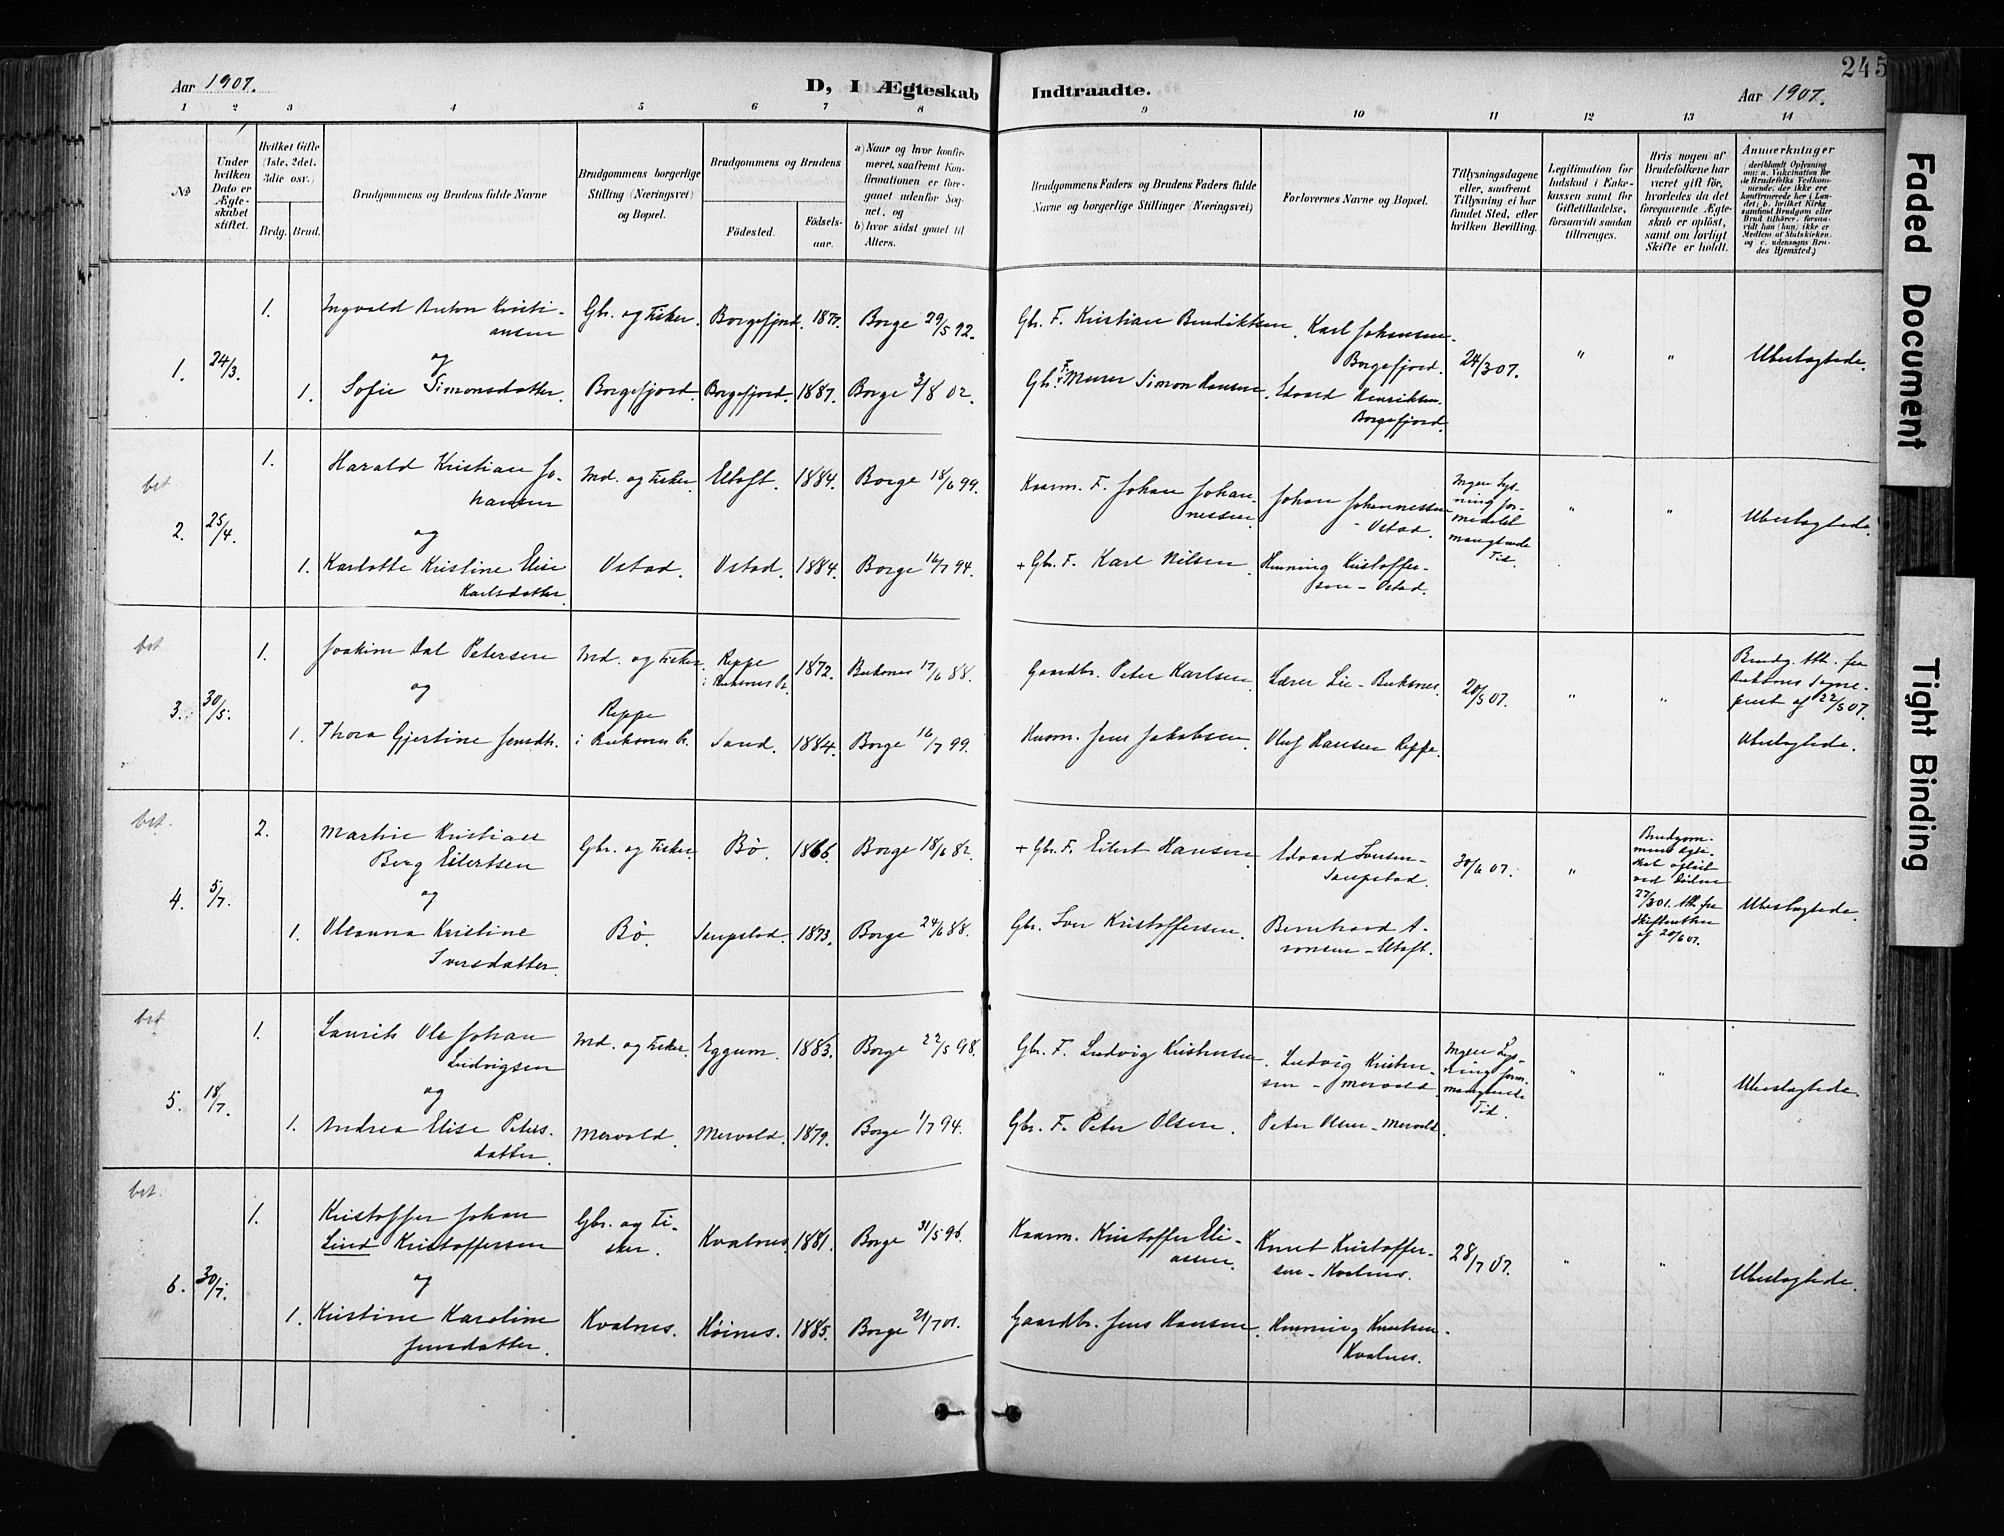 245
Aar 1907.
D, I Ægteskab
Indtraadte.
Aar 1907.
1 2 3 4 5 6 7 8 9 10 11 12 13 14
No
Under hvilken Dato er Ægteskabet stiftet.
Hvilket Gifte (1ste, 2det, 3die osv.)
Brdg. Brud.
Brudgommens og Brudens fulde Navne
Brudgommens borgerlige Stilling (Næringsvei) og Bopæl.
Brudgommens og Brudens
Födested.
Födselsaar.
a) Naar og hvor konfirmeret, saafremt Konfirmationen er foregaaet udenfor Sognet, og
b) hvor sidst gaaet til Alters.
Brudgommens Faders og Brudens Faders fulde Navne og borgerlige Stillinger (Næringsvei)
Forlovernes Navne og Bopæl.
Tillysningsdagene eller, saafremt Tillysning ei har fundet Sted, efter hvilken Bevilling.
Legitimation for Indskud i Enkekassen samt for Giftetilladelse, forsaavidt saadan tiltrænges.
Hvis nogen af Brudefolkene har været gift för, hvorledes da det foregaaende Ægteskab er oplöst, samt om lovligt Skifte er holdt.
Anmærkninger
(deriblandt Oplysning om: a. Vaccination for de Brudefolks Vedkommende, der ikke ere konfirmerede her i Landet; b. hvilket Kirkesamfund Brudgom eller Brud tilhörer, forsaavidt han (hun) ikke er Medlem af Statskirken, og c. udensogns Brudes Hjemsted.)
1. 24/3. 1. Ingvald Anton Kristiansen Gbr. og Fisker. Borgefjord. 1877. Borge 29/5 92. Gbr. F. Kristian Bendiktsen. Karl Johansen - Borgefjord. 24/3 07. " " Ubeslagtede.
og
1. Sofie Simonsdatter. Borgefjord. Borgefjord. 1887. Borge 3/8 02. Gbr. F. Murer Simon Hansen. Edvard Henriksen - Borgefjord.
bet
2. 25/4. 1. Harald Kristian Johansen Ind. og Fisker. Eltoft. 1884. Borge 18/6 99. Kaarm. F. Johan Johannessen. Johan Johannessen - Ostad. Ingen Lysning formedelst manglende Tid. " " Ubeslagtede.
og
1. Karlotte Kristine Elise Karlsdatter. Ostad. Ostad. 1884. Borge 16/7 94. + Gbr. F. Karl Nilsen. Henning Kristoffersen - Ostad.
bet
3. 30/5. 1. Joakim Dal Petersen Ind. og Fisker. Reppe i Buksnes Pr. 1872. Buksnes 17/6 88. Gaardbr. Peter Karlsen. Lærer Lie - Buksnes. 20/5 07. " " Brudg. Att. fra Buksnes Sogneprest af 22/5 07.
og
1. Thora Gjertine Jensdtr. Reppe i Buksnes Pr. Sand. 1884. Borge 16/7 99. Husm. Jens Jakobsen. Oluf Hansen Reppe. Ubeslagtede.
bet.
4. 5/7. 2. Martin Kristian Berg Eilertsen Gbr. og Fisker. Bø. 1866. Borge 18/6 82. + Gbr. F. Eilert Hansen. Edvard Iversen - Saupstad. 30/6 07. " Brudgommens Ægteskab oplöst ved Döden 27/3 01. Att. fra Skifteretten af 20/6 07. Ubeslagtede.
og
1. Oleanna Kristine Iversdatter. Bø. Saupstad. 1873. Borge 24/6 88. Gbr. Iver Kristoffersen. Bernhard Aronsen - Utoft.
bet
5. 18/7. 1. Laurits Ole Johan Ludvigsen Ind. og Fisker. Eggum. 1883. Borge 22/5 98. Gbr. F. Ludvig Kristensen. Ludvig Kristensen - Mervold. Ingen Lysning form. manglende Tid. " " Ubeslagtede.
og
1. Andrea Elise Petersdatter. Mervold. Mervold. 1879. Borge 1/7 94. Gbr. F. Peter Olsen. Peter Olsen - Mervold.
bet.
6. 30/7. 1. Kristoffer Johan Lind Kristoffersen Gbr. og Fisker. Kvalnes. 1881. Borge 31/5 96. Kaarm. Kristoffer Eliassen. Knut Kristoffersen - Kvalnes. 28/7 07. " " Ubeslagtede.
og
1. Kristine Karoline Jensdatter. Kvalnes. Höines. 1885. Borge 21/7 01. Gaardbr. Jens Hansen. Henning Knutsen - Kvalnes.
Faded Document
Tight Binding